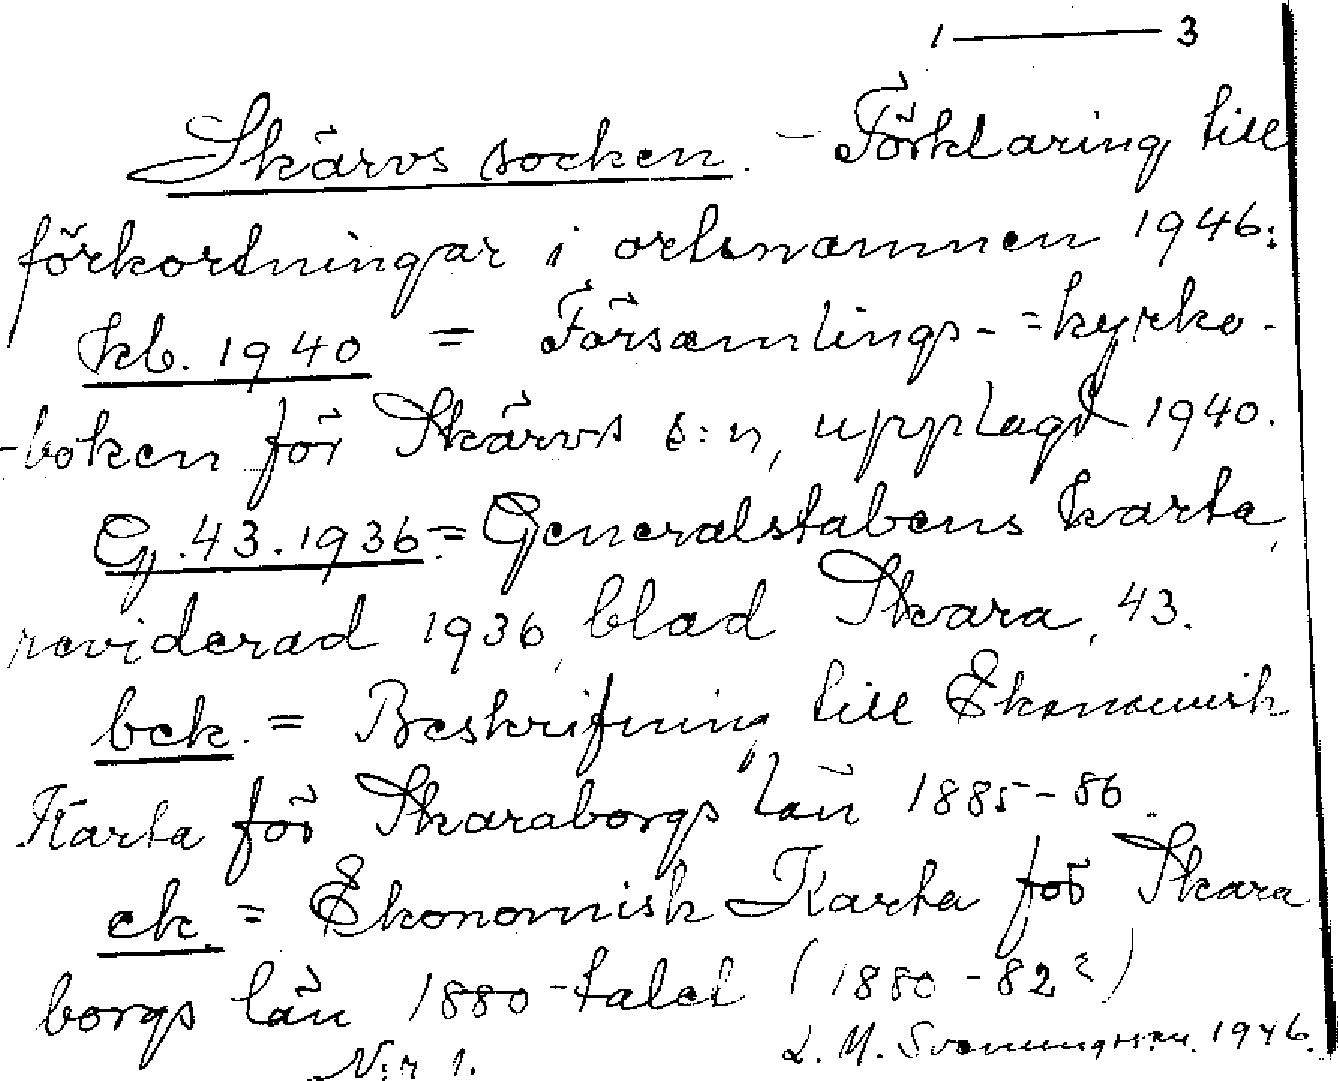 1 — 3
Skärvs socken. - Förklaring till
förkortningar i ortsnamnen 1946:
kb. 1940 = Församlings- =kyrko-
-boken för Skärvs s:n, upplagd 1940.
G. 43. 1936. = Generalstabens karta,
reviderad 1936, blad Skara, 43.
bek. = Beskrifning till Ekonomisk
Karta för Skaraborgs län 1885-86.
ek. = Ekonomisk Karta för Skara
borgs län 1880-talet (1880-82?)
N:r 1. L. M. Svenungsson. 1946.